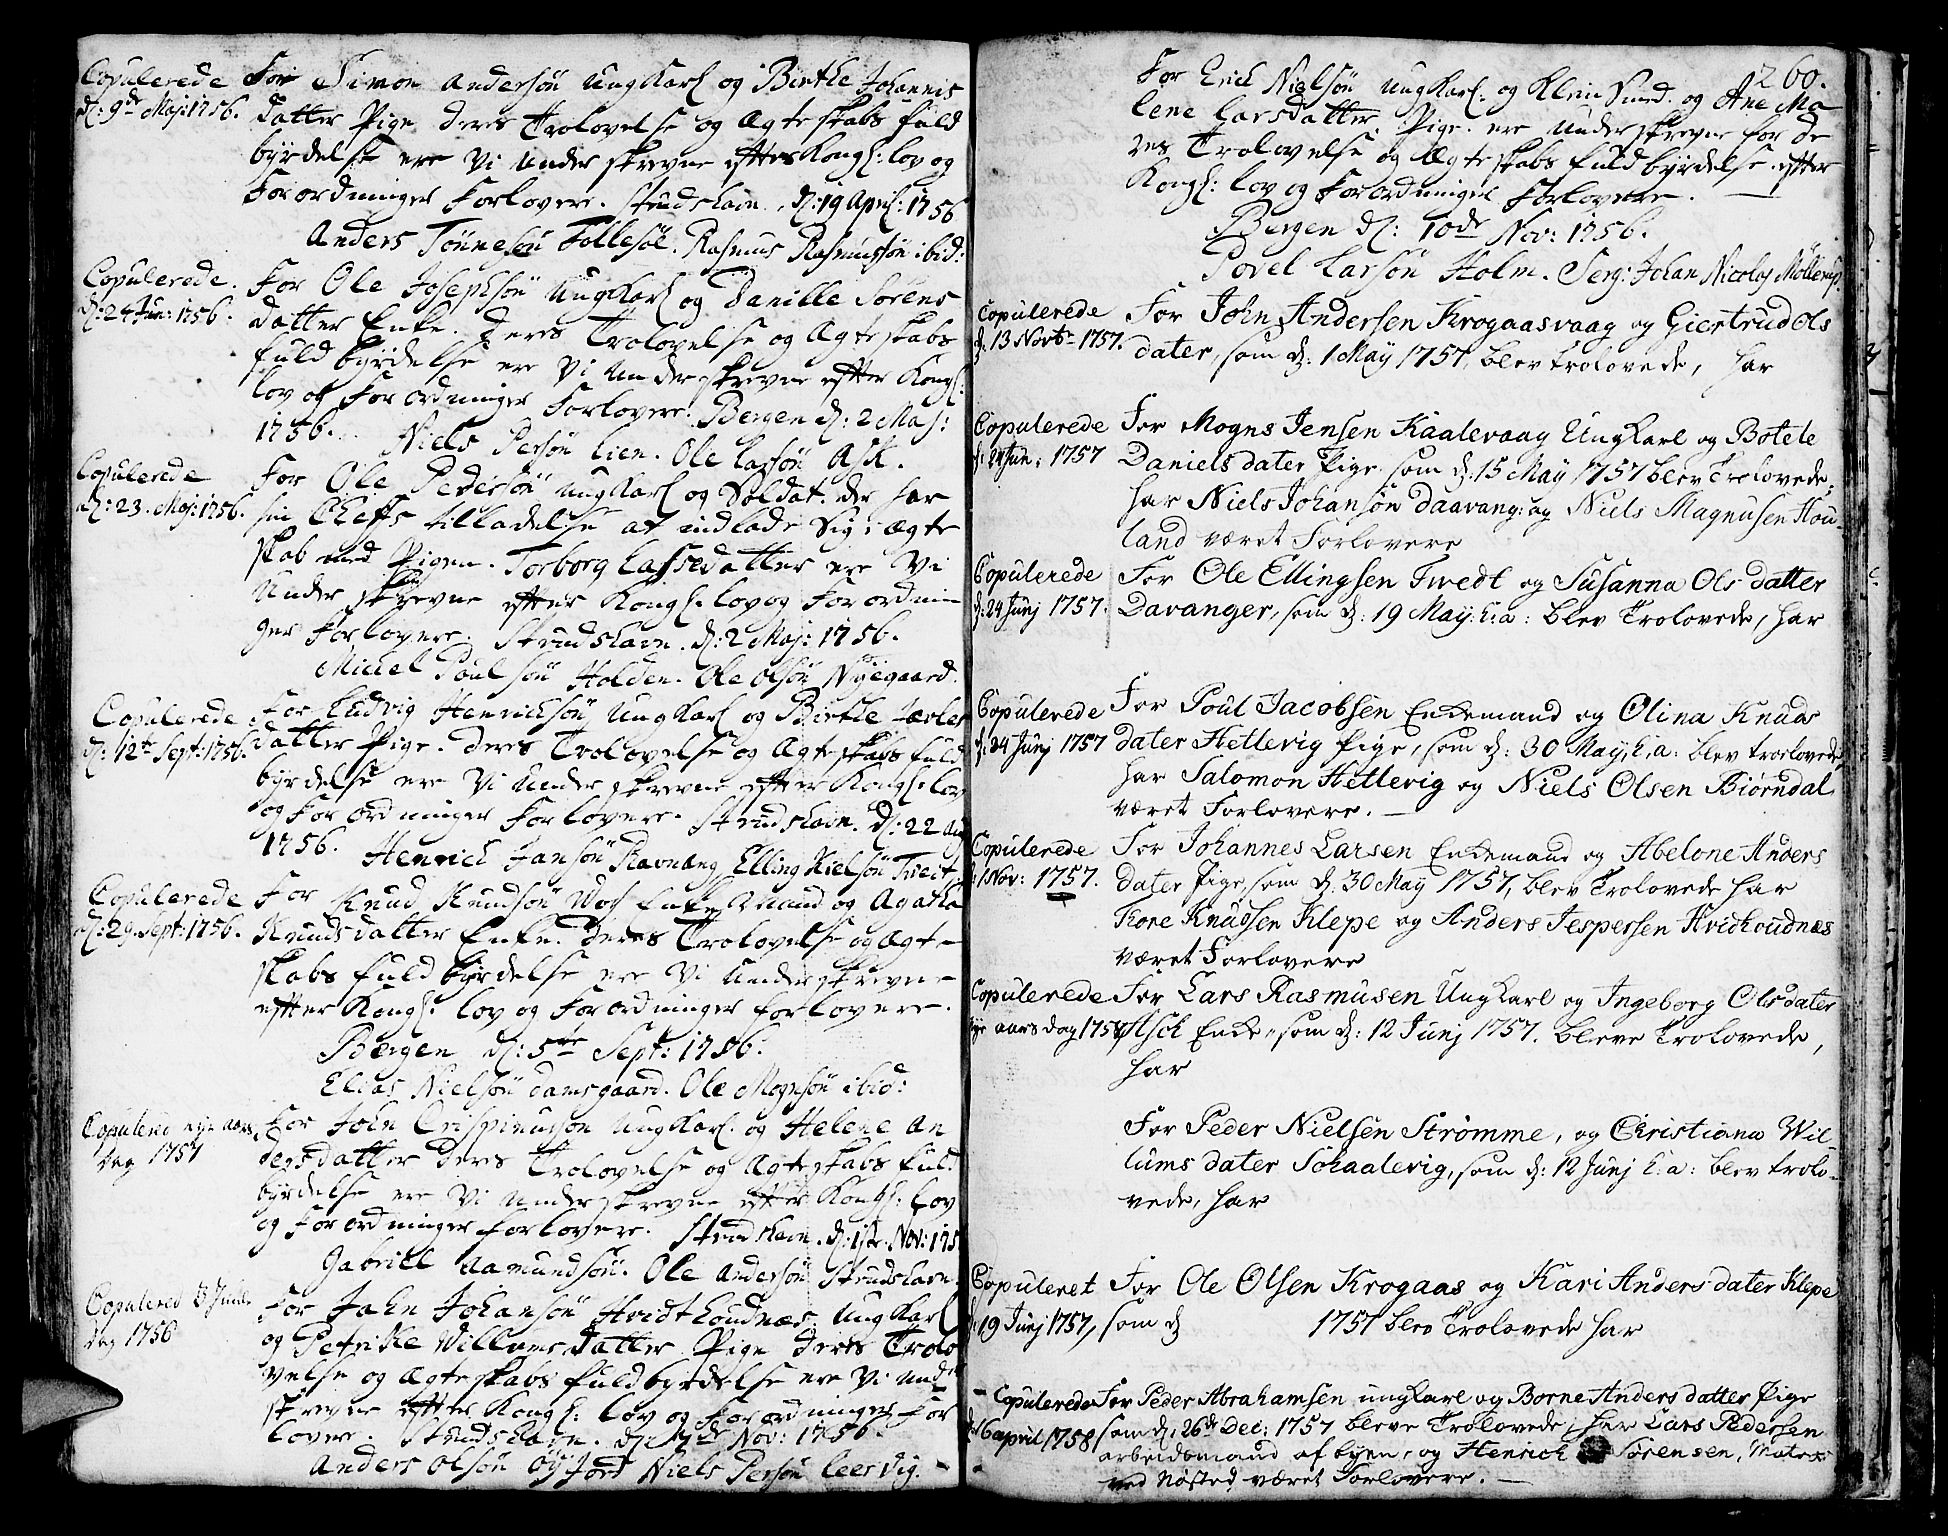 Copulerede
d: 9de Maj: 1756.
For Simon Andersøn UngKarl og Birthe Johannis
datter Pige deres Trolovelse og Ægteskabs fuld
byrdelse ere Vi underskrevne efter Kongl: lov og
Forordninger Forlovere. Strudshavn. d: 19 April: 1756
Anders Tønnesøn Follesøe. Rasmus Rasmussøn ibid:
Copulerede.
d: 24 Jun: 1756.
For Ole Josephsøn UngKarl og Danille Sørens
datter Enke. deres Trolovelse og Ægteskabs
fuldbyrdelse ere Vi Underskrevne efter Kongl:
lov og Forordninger Forlovere. Bergen d: 2 Maj:
1756. Niels Persøn Lien. Ole Larsøn Ask.
Copulerede
d: 23. Maj: 1756.
For Ole Pedersøn UngKarl og Soldat. der har
sin Cheffs tilladelse at indlade Sig i ægte
skab med Pigen. Torborg Lassedatter ere Vi
Underskrevne efter Kongl: lov og Forordnin
ger Forlovere. Strudshavn. d: 2 Maj: 1756.
Mickel Poulsøn Holden. Ole Olsøn Nyegaard.
Copulerede
d: 12te Sept: 1756.
For Ludvig Henricksøn UngKarl og Birthe
datter Pige. deres Trolovelse og Ægteskabs fuld
byrdelse ere Vi Underskrevne efter Kongl: lov
og Forordninger Forlovere. Strudshavn. d: 22 Aug
1756. Henrick Jansøn Ravnang Elling Nielsøn Tveit
Copulerede
d: 29. Sept: 1756.
For Knud Knudsøn EnkeMand og Agatha
Knudsdatter Enke. deres Trolovelse og Ægte
skabs fuldbyrdelse ere Vi Underskrevne
efter Kongl: lov og Forordninger forlovere.
Bergen d: 5te Sept: 1756.
Elias Nielsøn Damsgaard. Ole Mognsøn ibid:
Copulered nye aars
dag 1757
For John Crispinusøn UngKarl. og Helene An
dersdatter deres Trolovelse og Ægteskabs fuld
byrdelse ere Vi Underskrevne efter Kongl: lov
og Forordninger forlovere. Strudshavn. d: 1ste Nov: 175
Gabriel Aamundsøn. Ole Andersøn Strudshavn.
Copulered 3 Jule
dag 1756
For John Johansøn Hvidthoudnæs UngKarl
og Petrikke Willumsdatter Pige deres Trolo
velse og Ægteskabs fuldbyrdelse ere Vi Under
skrevne efter Kongl: lov og Forordninger For
lovere. Strudshavn. d: Nov: 1756.
Anders Olsøn Niels Persøn Leervig.
260.
For Erick Nielsøn UngKarl. og Klein Smed. og Ane Ma
lene Larsdatter. Pige. ere Underskrevne for de
res Trolovelse og Ægteskabs fuldbyrdelse. efter
Kongl: lov og Forordninger Forlovere.
Bergen d: 10de Nov: 1756.
Povel Larsøn Holm. Serg: Johan Nicolay Møllerup.
Copulerede
d. 13 Novbr 1757.
For John Andersen Krogaasvaag og Giertrud Ols
dater, som d: 1 May 1757, blev trolovede, har
Copulerede
d: 24 Jun: 1757
For Mogns Jensen Kaalevaag UngKarl og Botele
Daniels dater Pige som d: 15 May 1757 blev Trolovede,
har Niels Johansøn Daavang: og Niels Magnusen Hou
land været Forlovere
Copulerede
d: 24 Junj 1757.
For Ole Ellingsen Twedt og Susanna Ols datter
Davanger, som d: 19 May: h: a: blev Trolovede, har
Copulerede
d: 24 Junj 1757
For Poul Jacobsen Enkemand og Olina Knuds
dater Hetlevig Pige, som d: 30 May, h: a: blev trorlovede,
har Salomon Hetlevig og Niels Olsen Biørndal
været Forlovere.
Copulerede
1 Nov: 1757.
For Johannes Larsen Enkemand og Abelone Anders
dater Pige, som d: 30 May 1757, blev Trolovede har
Tore Knudsen Klepe og Anders Jespersen Hvidhoudnæs
været Forlovere
Copulerede
nye aars dag 1758
For Lars Rasmusen UngKarl og Ingeborg Olsdater
Asck Enke, som d: 12 Junj 1757. bleve Trolovede,
har
For Peder Nielsen Strømme, og Christiana Wil-
lums dater Schaalevig, som d: 12 Junj h: a: blev trolo-
vede, har
Copuleret
d: 19 Junj 1757,
For Ole Olsen Krogaas og Kari Anders dater Klepe
som d 1757 blev Trolovede har
Copulerede
d: 16 april 1758
For Peder Abrahamsen ungkarl og Borne Anders datter Pige
som d: 26de Dec: 1757 bleve Trolovede, har Lars Pedersen
arbeidsmand af byen, og Henrich Sørensen, Matros
ved Nøsted været Forlovere.